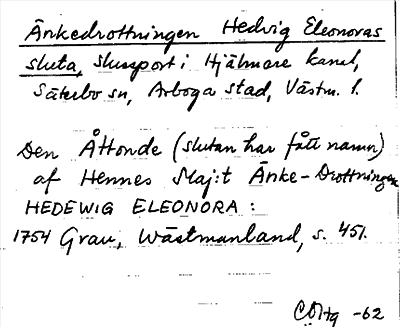 Änkedrottningen Hedvig Eleonoras
sluta, slussport i Hjälmare kanal,
Säterbo sn, Arboga stad, Västm. l.
Den Åttonde (slutan har fått namn)
af Hennes Maj:t Änke-Drottningen
HEDEWIG ELEONORA :
1754 Grau, Wästmanland, s. 451.
-62